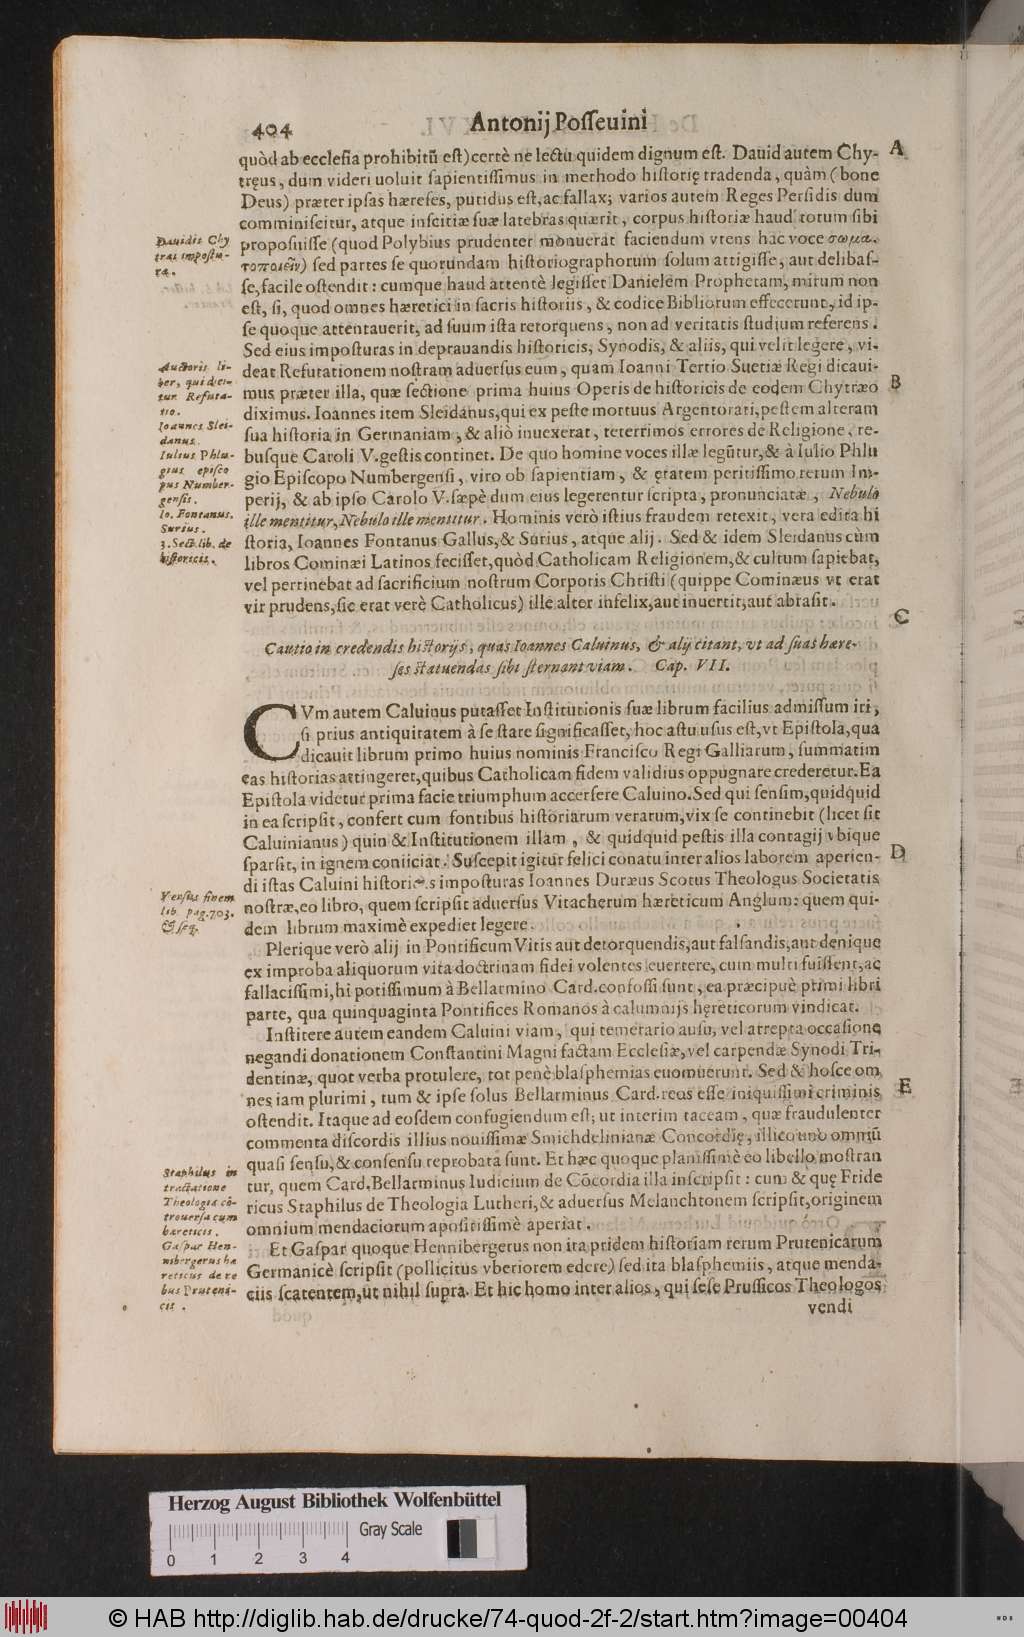 404
Antonij Posseuini
quòd ab ecclesia prohibitũ est) certè ne lectu quidem dignum est. Dauid autem Chy-
A
tręus, dum videri uoluit sapientissimus in methodo historię tradenda, quàm (bone
Deus) præter ipsas hæreses, putidus est, ac fallax; varios autem Reges Persidis dum
comminiscitur, atque inscitiæ suæ latebras quærit, corpus historiæ haud totum sibi
Dauidis Chy
træi impostu-
ra.
proposuisse (quod Polybius prudenter monuerat faciendum vtens hac voce σωμα-
τοποιεῖν) sed partes se quorundam historiographorum solum attigisse, aut delibas-
se, facile ostendit: cumque haud attentè legisset Danielem Prophetam, mirum non
est, si, quod omnes hæretici in sacris historiis, & codice Bibliorum effecerunt, id ip-
se quoque attentauerit, ad suum ista retorquens, non ad veritatis studium referens.
Sed eius imposturas in deprauandis historicis, Synodis, & aliis, qui velit legere, vi-
Auctoris li-
ber, qui dici-
tur Refuta-
tio.
deat Refutationem nostram aduersus eum, quam Ioanni Tertio Suetiæ Regi dicaui-
mus præter illa, quæ sectione prima huius Operis de historicis de eodem Chytræo
B
diximus. Ioannes item Sleidanus, qui ex peste mortuus Argentorati, pestem alteram
Ioannes Slei-
danus.
sua historia in Germaniam, & aliò inuexerat, teterrimos errores de Religione, re-
busque Caroli V. gestis continet. De quo homine voces illæ legũtur, & à Iulio Phlu
Iulius Phlu-
gius episco
pus Number-
gensis.
gio Episcopo Numbergensi, viro ob sapientiam, & ętatem peritissimo rerum Im-
perij, & ab ipso Carolo V. sæpè dum eius legerentur scripta, pronunciatæ, Nebulo
ille mentitur, Nebulo ille mentitur. Hominis verò istius fraudem retexit, vera edita hi
Io. Fontanus.
Surius.
storia, Ioannes Fontanus Gallus, & Surius, atque alij. Sed & idem Sleidanus cùm
3. Sect. lib. de
historicis.
libros Cominæi Latinos fecisset, quòd Catholicam Religionem, & cultum sapiebat,
vel pertinebat ad sacrificium nostrum Corporis Christi (quippe Cominæus vt erat
vir prudens, sic erat verè Catholicus) ille alter infelix, aut inuertit, aut abrasit.
C
Cautio in credendis historijs, quas Ioannes Caluinus, & alij citant, vt ad suas hære-
ses statuendas sibi sternant viam. Cap. VII.
CVm autem Caluinus putasset Institutionis suæ librum facilius admissum iri,
si prius antiquitatem à se stare significasset, hoc astu usus est, vt Epistola, qua
dicauit librum primo huius nominis Francisco Regi Galliarum, summatim
eas historias attingeret, quibus Catholicam fidem validius oppugnare crederetur. Ea
Epistola videtur prima facie triumphum accersere Caluino. Sed qui sensim, quidquid
in ea scripsit, confert cum fontibus historiarum verarum, vix se continebit (licet sit
Caluinianus) quin & Institutionem illam, & quidquid pestis illa contagij vbique
sparsit, in ignem coniiciat. Suscepit igitur felici conatu inter alios laborem aperien-
D
di istas Caluini historicas imposturas Ioannes Duræus Scotus Theologus Societatis
Versus finem
lib. pag. 703.
& seq.
nostræ, eo libro, quem scripsit aduersus Vitacherum hæreticum Anglum: quem qui-
dem librum maximè expediet legere.
Plerique verò alij in Pontificum Vitis aut detorquendis, aut falsandis, aut denique
ex improba aliquorum vita doctrinam fidei volentes euertere, cum multi fuissent, ac
fallacissimi, hi potissimum à Bellarmino Card. confossi sunt, ea præcipuè primi libri
parte, qua quinquaginta Pontifices Romanos à calumnijs hęreticorum vindicat.
Institere autem eandem Caluini viam, qui temerario ausu, vel arrepta occasione
negandi donationem Constantini Magni factam Ecclesiæ, vel carpendæ Synodi Tri-
dentinæ, quot verba protulere, tot penè blasphemias euomuerunt. Sed & hosce om
E
nes iam plurimi, tum & ipse solus Bellarminus Card. reos esse iniquissimi criminis
ostendit. Itaque ad eosdem confugiendum est; ut interim taceam, quæ fraudulenter
commenta discordis illius nouissimæ Smichdelinianæ Concordię, illico uno omniũ
quasi sensu, & consensu reprobata sunt. Et hæc quoque planissimè eo libello mostran
Staphilus in
tractatione
Theologia cõ-
trouersa cum
hæreticis.
tur, quem Card. Bellarminus Iudicium de Cõcordia illa inscripsit: cum & quę Fride
ricus Staphilus de Theologia Lutheri, & aduersus Melanchtonem scripsit, originem
omnium mendaciorum apositissimè aperiat.
Gaspar Hen-
nibergerus hæ
reticus de re
bus Pruteni-
cis.
Et Gaspar quoque Hennibergerus non ita pridem historiam rerum Prutenicarum
Germanicè scripsit (pollicitus vberiorem edere) sed ita blasphemiis, atque menda-
ciis scatentem, ut nihil supra. Et hic homo inter alios, qui sese Prussicos Theologos
vendi
Herzog August Bibliothek Wolfenbüttel
Gray Scale
0 1 2 3 4
© HAB http://diglib.hab.de/drucke/74-quod-2f-2/start.htm?image=00404